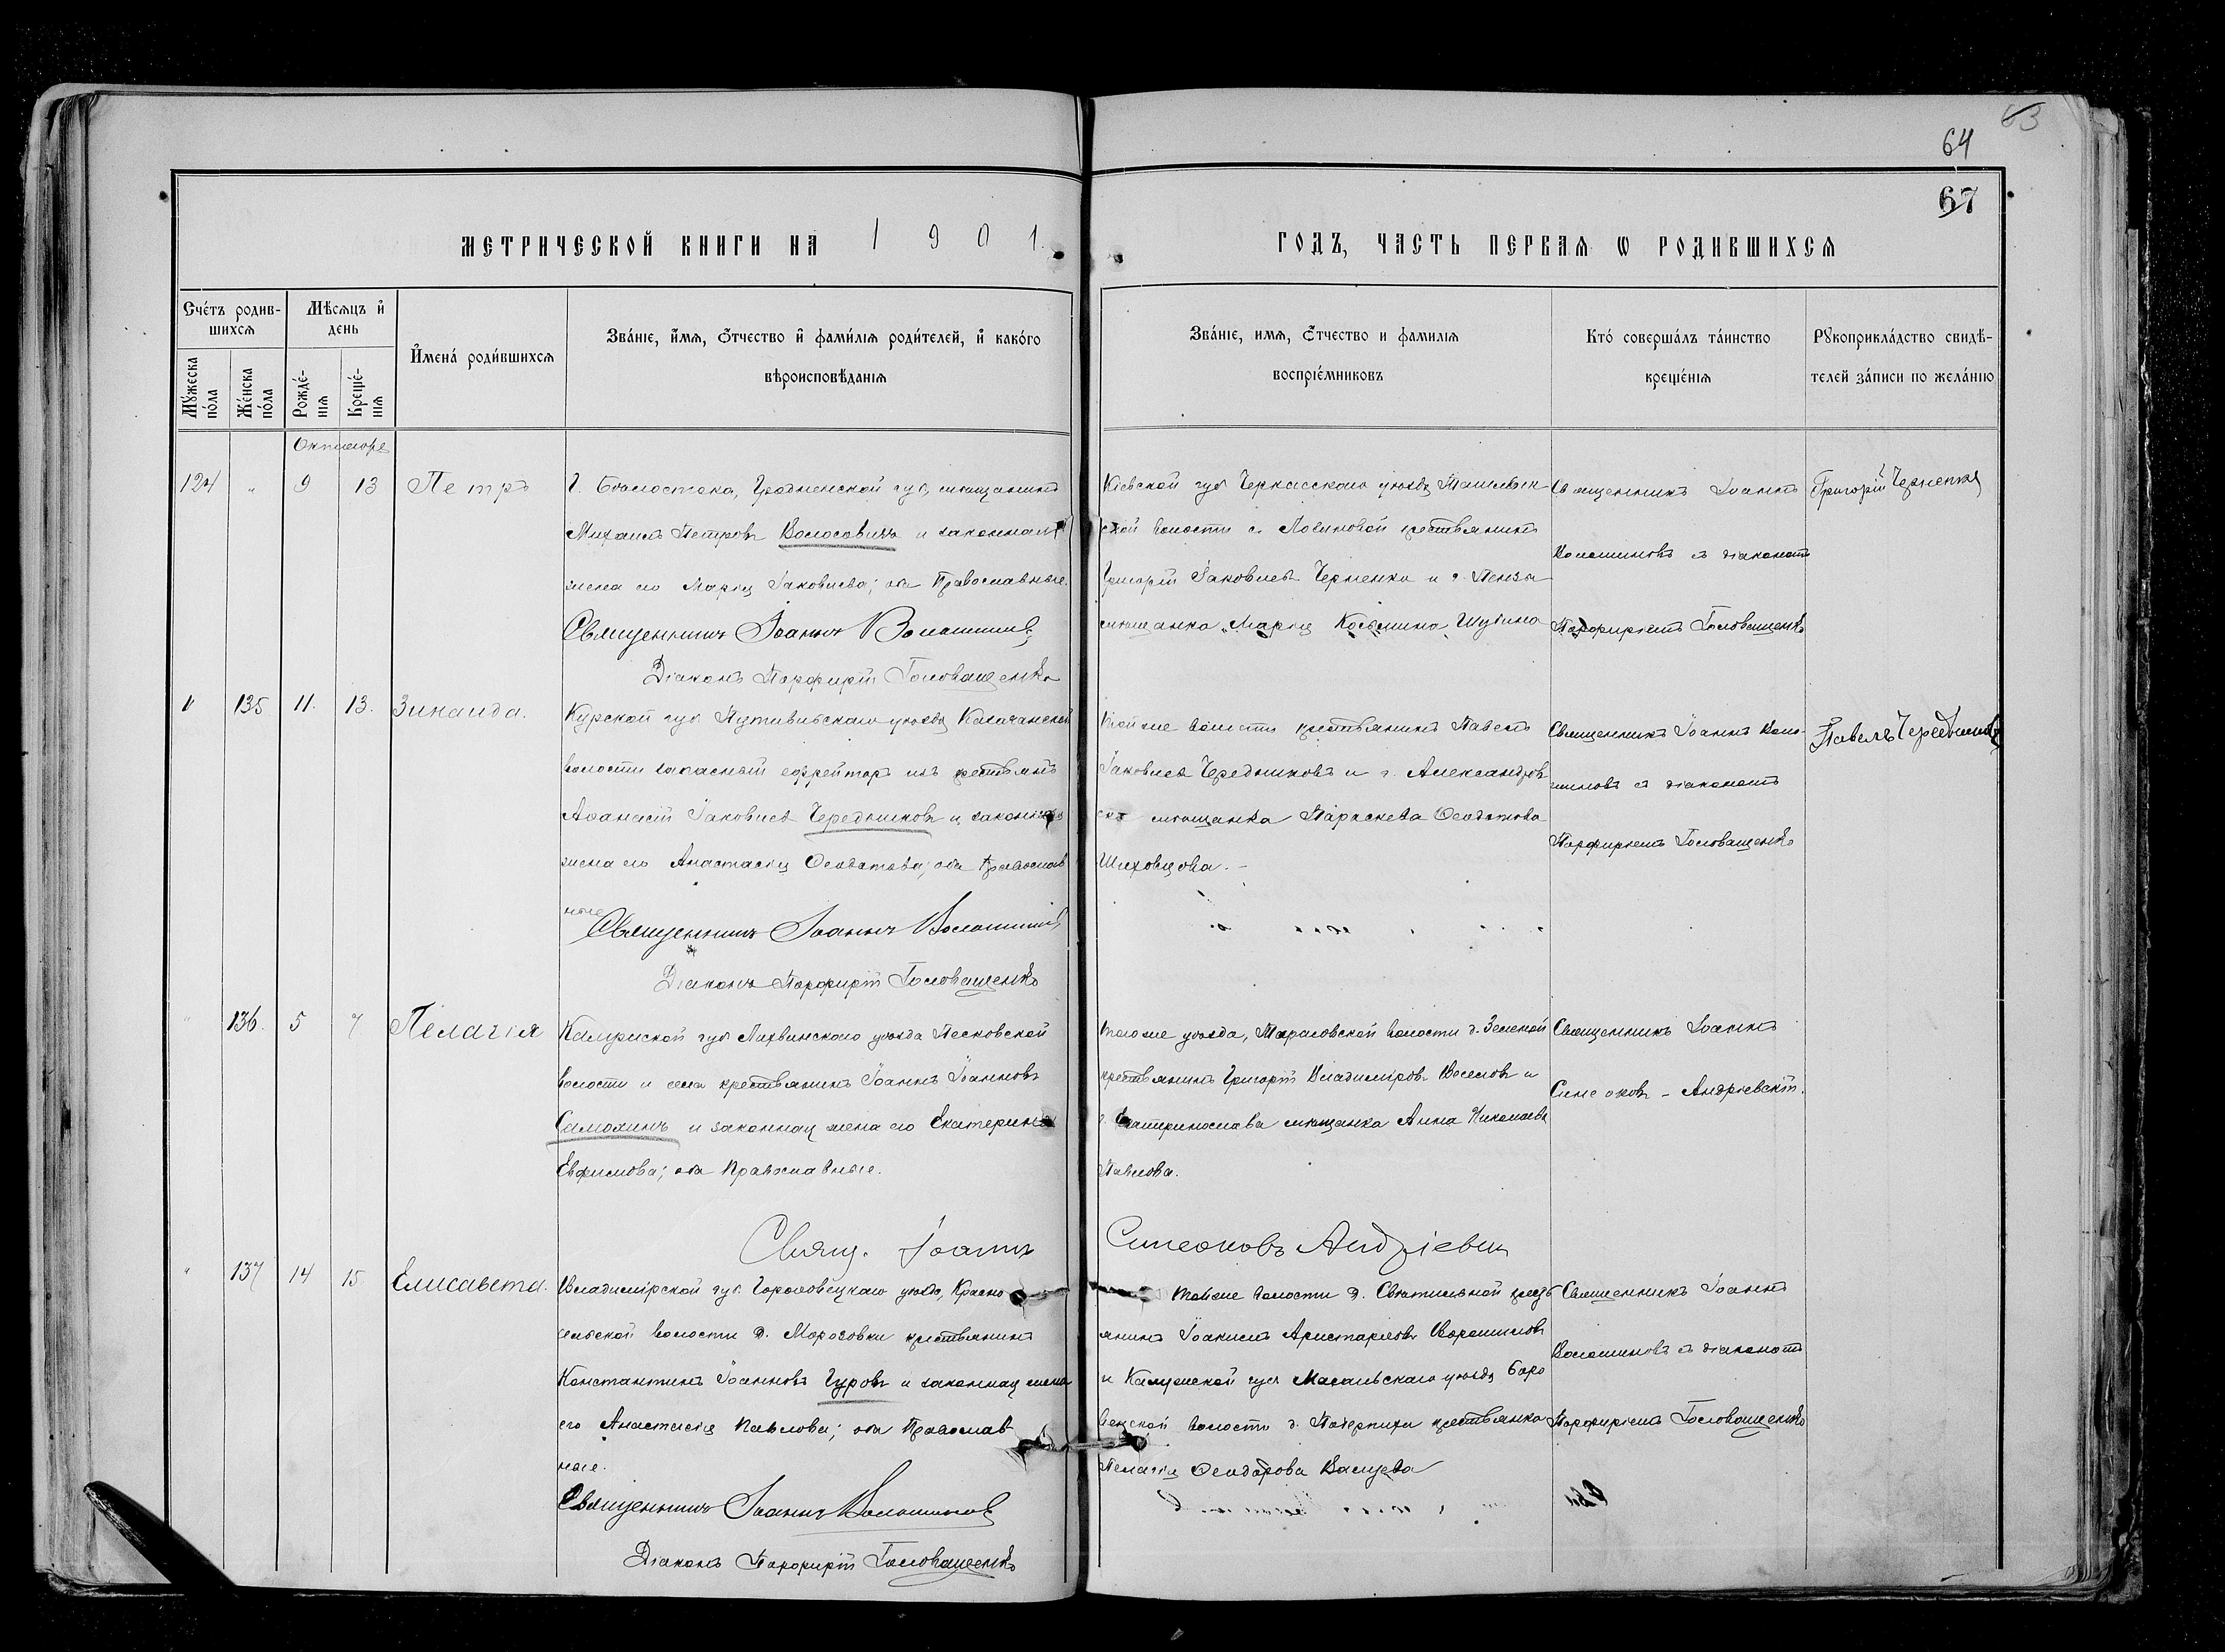 63
64
67
МЕТРИЧЕСКОЙ КНИГИ НА 1901.
ГОДЪ, ЧАСТЬ ПЕРВАЯ Ѡ РОДИВШИХСЯ
Счéтъ родив-
шихся
Мѣсяцъ и
день
Имена́ роди́вшихся
Зва́нїе, и́мя, ѻ́тчество и фами́лїя роди́телей, и како́го
вѣроисповѣ́данїя
Мꙋ́жеска
по́ла
Же́нска
по́ла
Рожде́-
нїя
Креще́-
нїя
Зва́нїе, имя, ѻ́тчество и фамилїя
воспрїе́мниковъ
Кто́ соверша́лъ та́инство
креще́нїя
Рꙋкоприкла́дство свидѣ́-
телей за́писи по жела́нїю
Октябрь
124 " 9 13 Петръ
Г. Бѣлостока, Гродненской губ, мѣщанинъ
Михаилъ Петровъ Волосовичъ и законная
жена его Марія Іаковлева; оба Православные.
Священникъ Іоаннъ Волошинов
Діаконъ Порфирій Головащенко
Кіевской губ Черкасскаго уѣзда
ской волости с. крестьянинъ
Григорій Іаковлевъ Черненко и г. Пензы
мѣщанка Марія Косьмина Шубина
Священникъ Іоаннъ
Волошиновъ съ діакономъ
Порфиріемъ Головащенко
Григорій Черненко
" 135 11. 13. Зинаида.
Курской губ Путивльскаго уѣзда Казачанской
волости запасный ефрейторъ изъ крестьянъ
Аѳанасій Іаковлевъ Чередниковъ и законная
жена его Анастасія Ѳеодотова; оба Православ
ные
Священникъ Іоаннъ Волошинов
Діаконъ Порфирій Головащенко
Той же волости крестьянинъ Павелъ
Іаковлевъ Чередниковъ и г. Александров
ска мѣщанка Параскева Ѳеодотова
Шиховцова. -
Священникъ Іоаннъ Воло-
шиновъ съ діакономъ
Порфиріемъ Головащенко
Павелъ Чередников
" 136. 5 7 Пелагія
Калужской губ Лихвинскаго уѣзда Песковской
волости и села крестьянинъ Іоаннъ Іоанновъ
Самохинъ и законная жена его Екатерина
Евфимова; оба Православные.
Свящ. Іоаннъ Симеоновъ Андріевск
того же уѣзда, волости д. Зеленой
крестьянинъ Григорій Владиміровъ Веселовъ и
г. Екатеринослава мѣщанка Анна Николаева
Павлова.
Священникъ Іоаннъ
Симеоновъ - Андріевскій.
" 137 14 15 Елисавета.
Владимірской губ. Гороховецкаго уѣзда, Красно
сельской волости д. Морозовки крестьянинъ
Константинъ Іоанновъ Гуровъ и законная жена
его Анастасія Павлова; оба Православ
ные.
Священникъ Іоаннъ Волошинов
Діаконъ Порфирій Головащенко
той же волости д. Святильной кресть
янинъ Іоакимъ Аристарховъ Ворошиловъ
и Калужской губ Мосальскаго уѣзда Боро
венской волости д. крестьянка
Пелагія Ѳеодорова
Священникъ Іоаннъ
Волошиновъ съ діакономъ
Порфиріемъ Головащенко